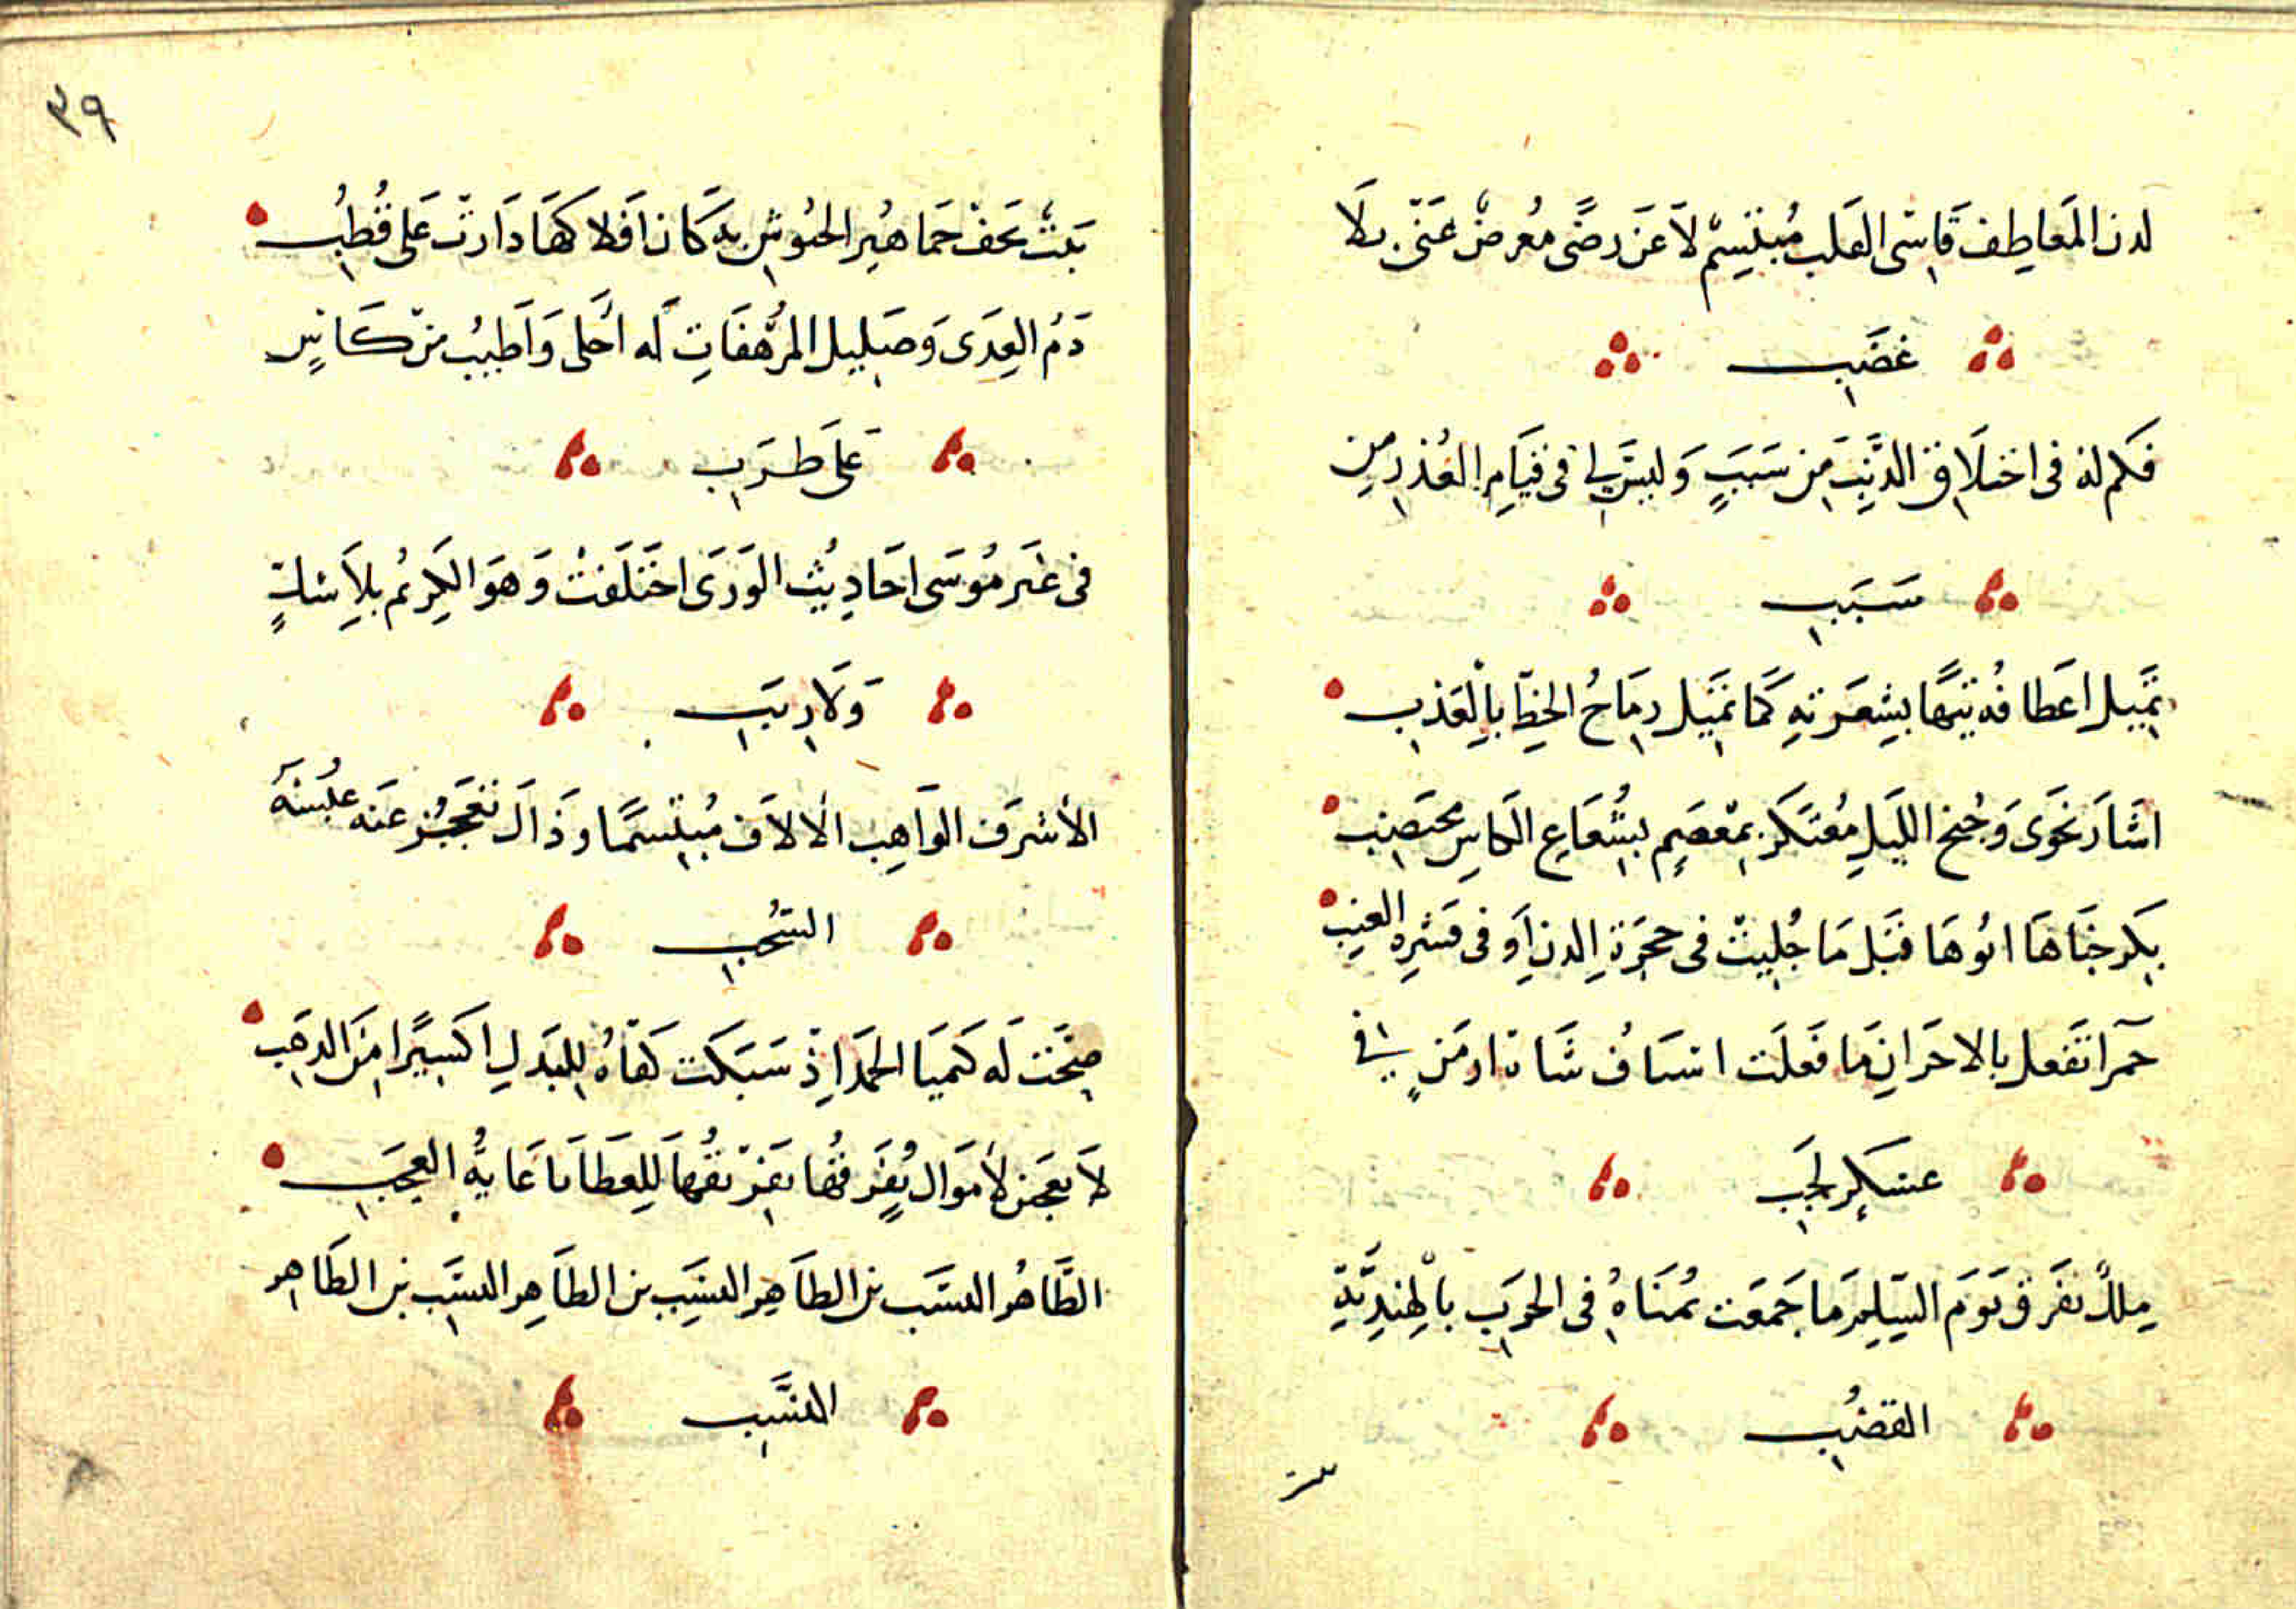 لدن المَعاطِف قَاسَى القلب مُبتَسِمٌ لاَ عَن رضًى مُعرضٌ عَنّى بلَا
غضَبِ
فكم له فى اختلَاق الذَنبِ مِن سَبَبٍ وَليسَ لى فى قيَامِ العُذر مِن
سَبَبِ
تمَيل اعَطافُه تيهًا بِشَعرَتهِ كمَا تمَيل رمَاحُ الخطِّ بالعَذبِ
اشَارَ نحَوى وَجُنح الليَلِ مُعتَكر بمعْصَمٍ بشُعَاعِ الكاسِ مختَضِبِ
بِكر جَنَاهَا ابُوهَا قبَل مَا جُليتْ فى حجرَة الدن اَو فى قشرِه العِنبِ
حَمرا تَفعل بالاحرَانِ مَا فَعلَت اسيَافُ شَاة ارمَنٍ فى
عسكرٍ لجَبِ
ملكٌ يفَرق يَومَ السِلمِ مَا جَمعَت يُمنَاهُ فى الحرَبِ بالهِنديّةِ
القضُبِ
تلتّ
٣٩
بَيتٌ تحَف جمَاهيُر الجيُوشِ بهِ كَان اَفلاكهَا دَارتْ عَلى قُطُبِ
دَمُ العِدَى وَصَليل المرُهفَاتِ لَه احَلى وَاَطيبُ مِن كَاسٍ
عَلى طرَبِ
فى غَير مُوسَى احَادِيُث الوَرَى اختَلَفتْ وَهوَ الكِريُم بلَا شكٍّ
وَلَا ريَبِ
الأشرَف الوَاهِب الالاَف مُبتَسمًا وَذَاكَ تعَجِزُ عَنه عَابسَة
السُحُبِ
صَحّت لَه كَميَا الحَمد اِذْ سَبَكت كفاهُ للبَدلِ اكسيًرا مِنَ الذهَبِ
لَا تعجَبن لأموَال يُفَرقُهَا تفَرّيقُهَا لِلعطَايَا غَايةُ العجَبِ
الطَّاهُر النسَب بن الطاَهِر النسَبِ بن الطاَهِر النسَبِ بن الطَاهر
النسَبِ